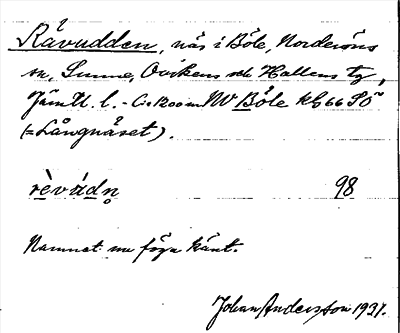 Råvudden, näs i Böle, Norderöns
sn, Sunne, Ovikens och Hallens tg,
Jämtl. l. - C:a 1200 m NV Böle kbl 66 SÖ
(= Långnäset).
rèvúdn̥ 98
Namnet nu föga känt.
Johan Andersson 1937.